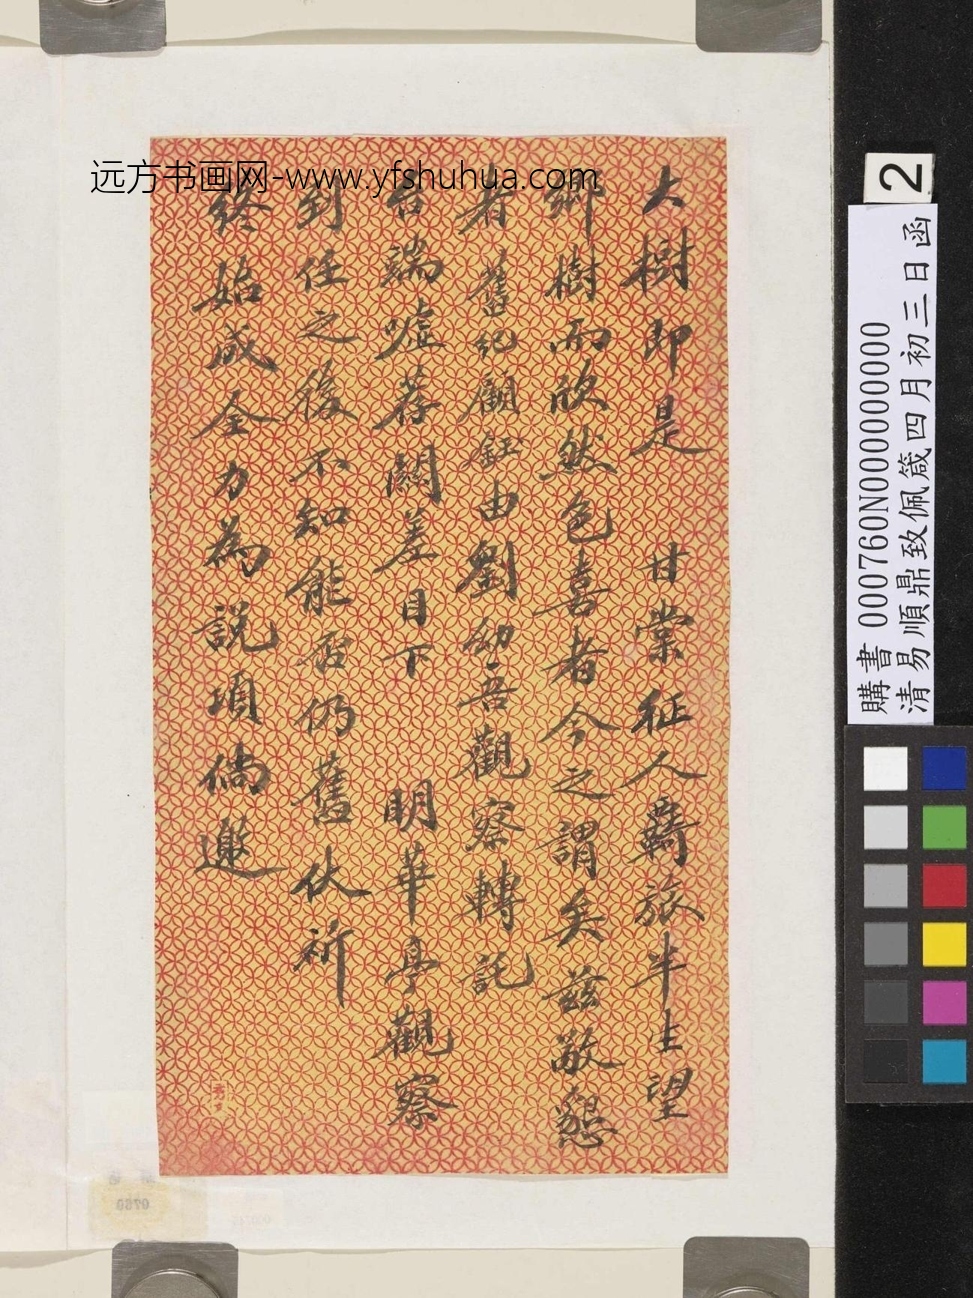 大樹即是 甘棠征人騎旅半上望
鄉樹而欣然色喜者今之謂矣茲敢懇
者舊紀顧鈺由劉幼吾觀察轉託
台端噓荐關差目下 明華亭觀察
到任之後不知能否仍舊伏祈
終始成全力為說項倘邀
远方书画网-www.yfshuhua.com
2
購書 000760N000000000
清易順鼎致佩箴四月初三日函
0760